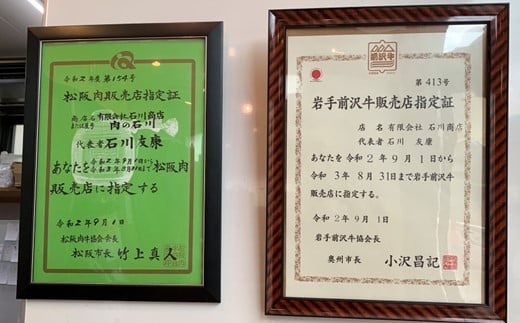 令和2年度第154号
松阪肉販売店指定証
商店名 有限会社 石川商店
または屋号 肉の石川
代表者 石川友康
あなたを令和2年9月1日から
令和3年8月31日まで松阪肉
販売店に指定する
令和2年9月1日
松阪肉牛協会会長
松阪市長 竹上真人
前沢牛
第413号
岩手前沢牛販売店指定証
店名 有限会社 石川商店
代表者 石川 友康
あなたを 令和 2年 9月 1日から
令和 3年 8月 31日まで岩手前沢牛
販売店に指定する。
令和 2年 9月 1日
岩手前沢牛協会長
奥州市長 小沢昌記